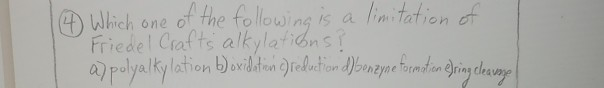 ④ Which one of the following is a limitation of
Friedel Crafts alkylations?
a) polyalkylation b) oxidation c) reduction d) benzyne formation e) ring cleavage